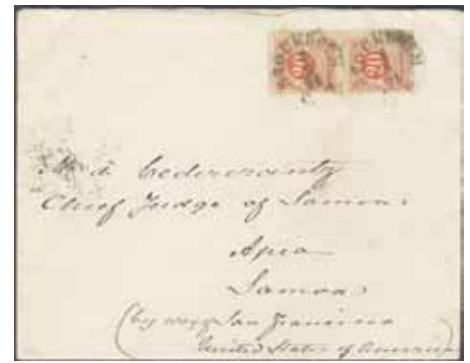 20 20
Cedercrantz
Chief Judge of Samoa
Apia
Samoa
(by way San Francisco
United States of America)